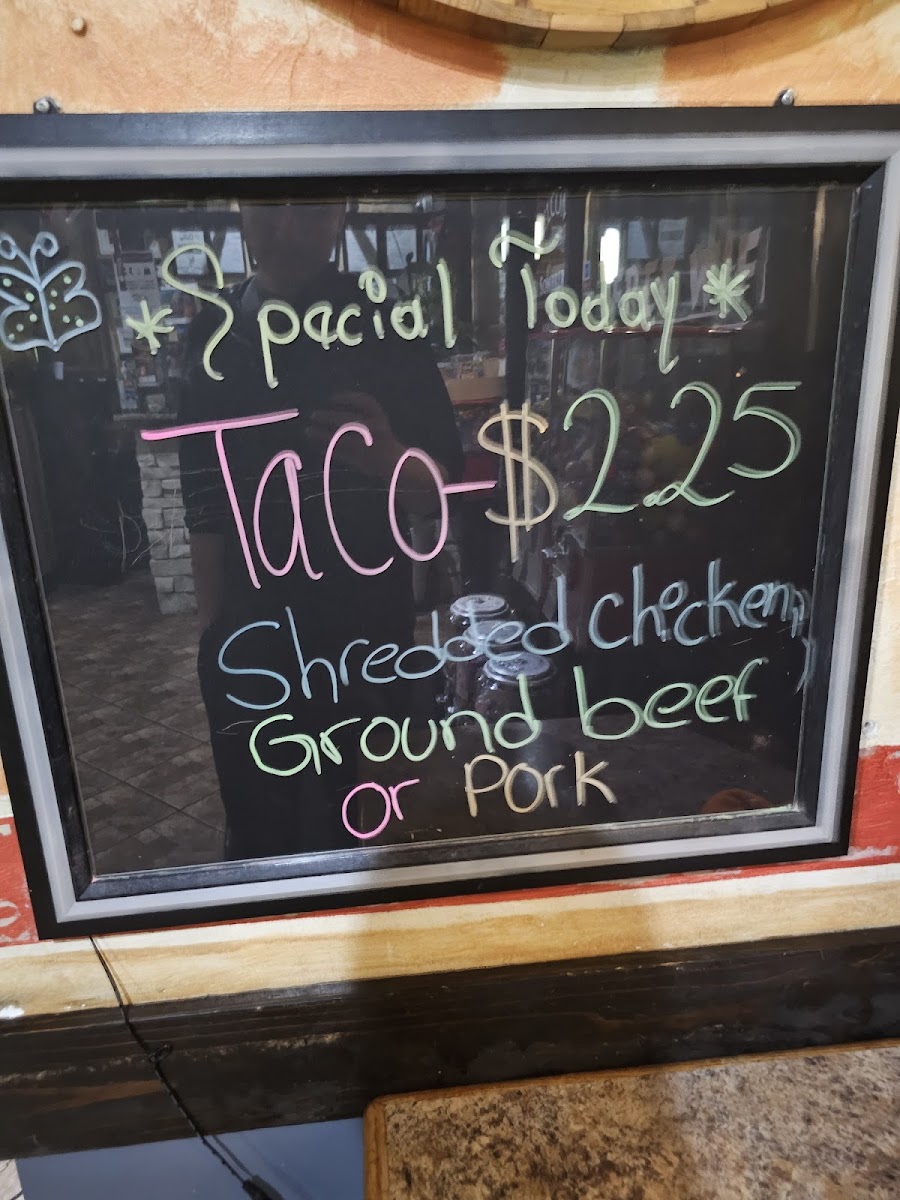 *Special Today*
Taco-$2.25
Shredded Chicken,
Ground beef
or Pork